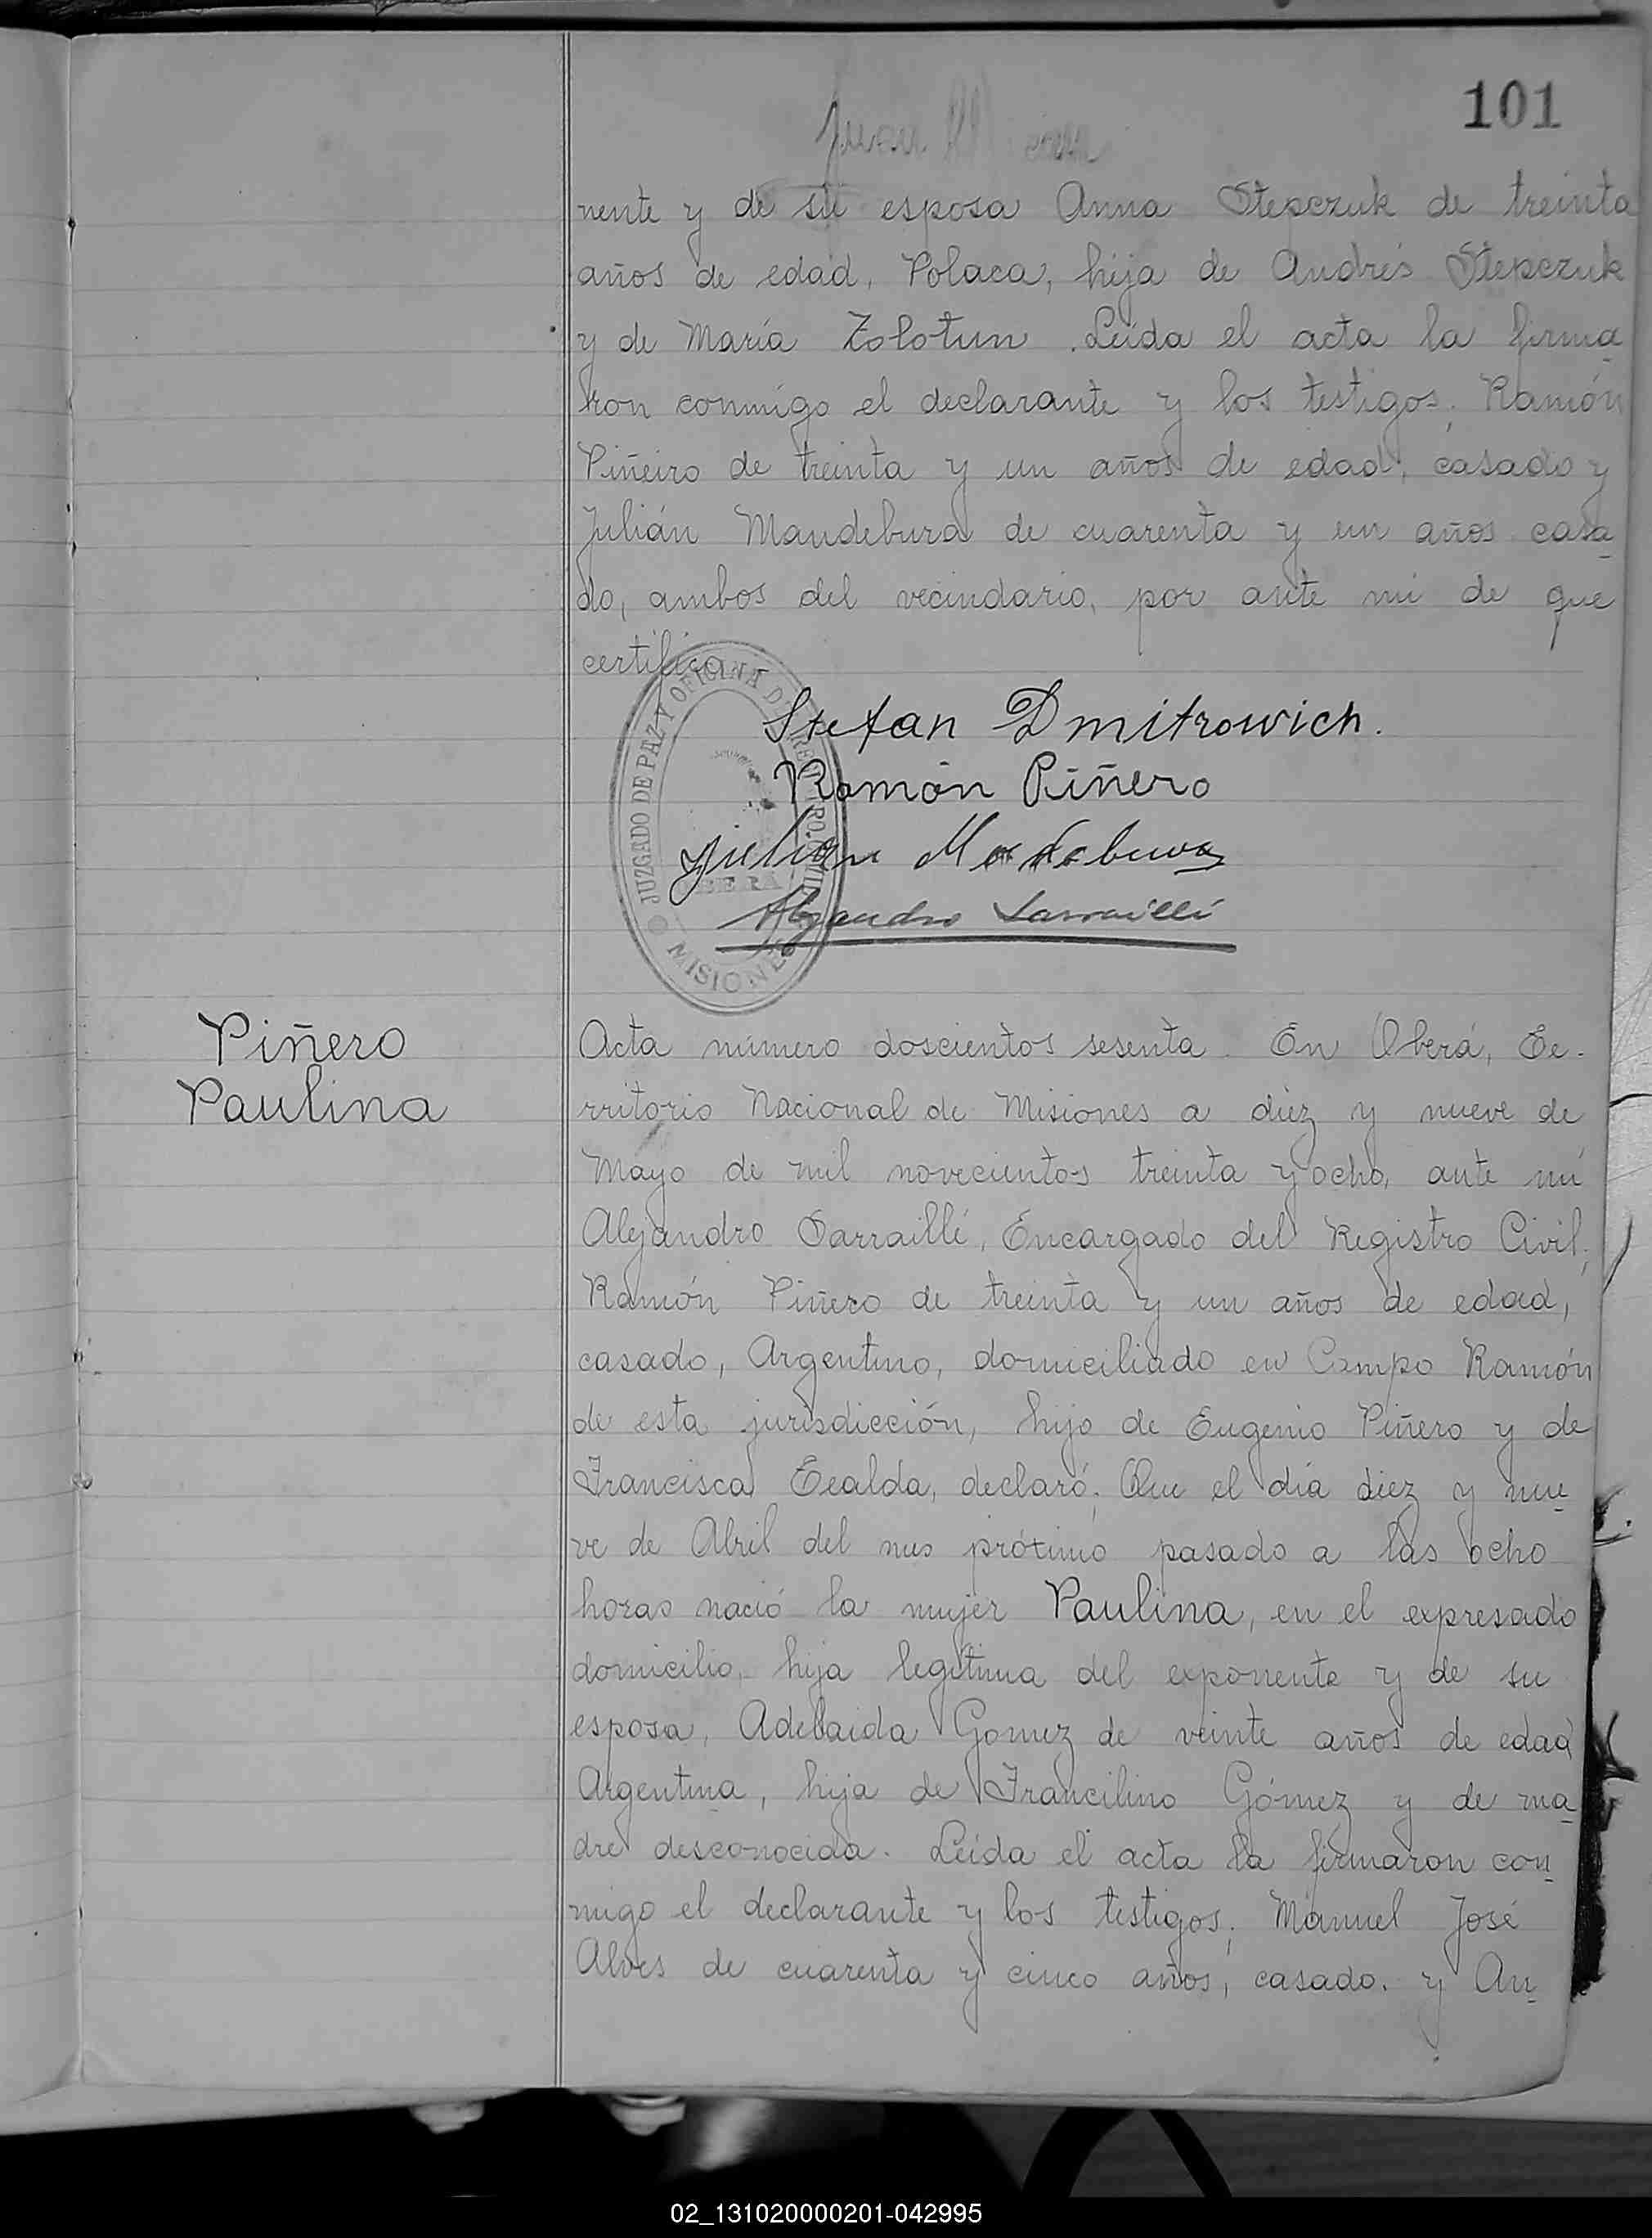 101
Juan
nente y de su esposa Anna Stepczuk de treinta
años de edad, Polaca, hija de Andrés Stepczuk
y de María Zolotun. Leída el acta la firma
ron conmigo el declarante y los testigos; Ramón
Piñeiro de treinta y un años de edad, casado y
Julián Mandebura de cuarenta y un años casa
do, ambos del vecindario, por ante mi de que
certifico
JUZGADO DE PAZ Y OFICINA DEL REGISTRO CIVIL
OBERA
MISIONES
Stefan Dmitrowich.
Ramón Piñero
Julian Mandebura
Alejandro Sarraillé
Piñero
Paulina
Acta número doscientos sesenta. En Oberá, Te-
rritorio Nacional de Misiones a diez y nueve de
Mayo de mil novecientos treinta y ocho, ante mí
Alejandro Sarraillé, Encargado del Registro Civil;
Ramón Piñero de treinta y un años de edad,
casado, Argentino, domiciliado en Campo Ramón
de esta jurisdicción, hijo de Eugenio Piñero y de
Francisca Tealda, declaró: Que el día diez y nue
ve de Abril del mes próximo pasado a las ocho
horas nació la mujer Paulina, en el expresado
domicilio, hija legítima del exponente y de su
esposa, Adelaida Gomez de veinte años de edad
Argentina, hija de Francilino Gómez y de ma
dre desconocida. Leída el acta la firmaron con
migo el declarante y los testigos; Manuel José
Alves de cuarenta y cinco años, casado, y An
02_131020000201-042995